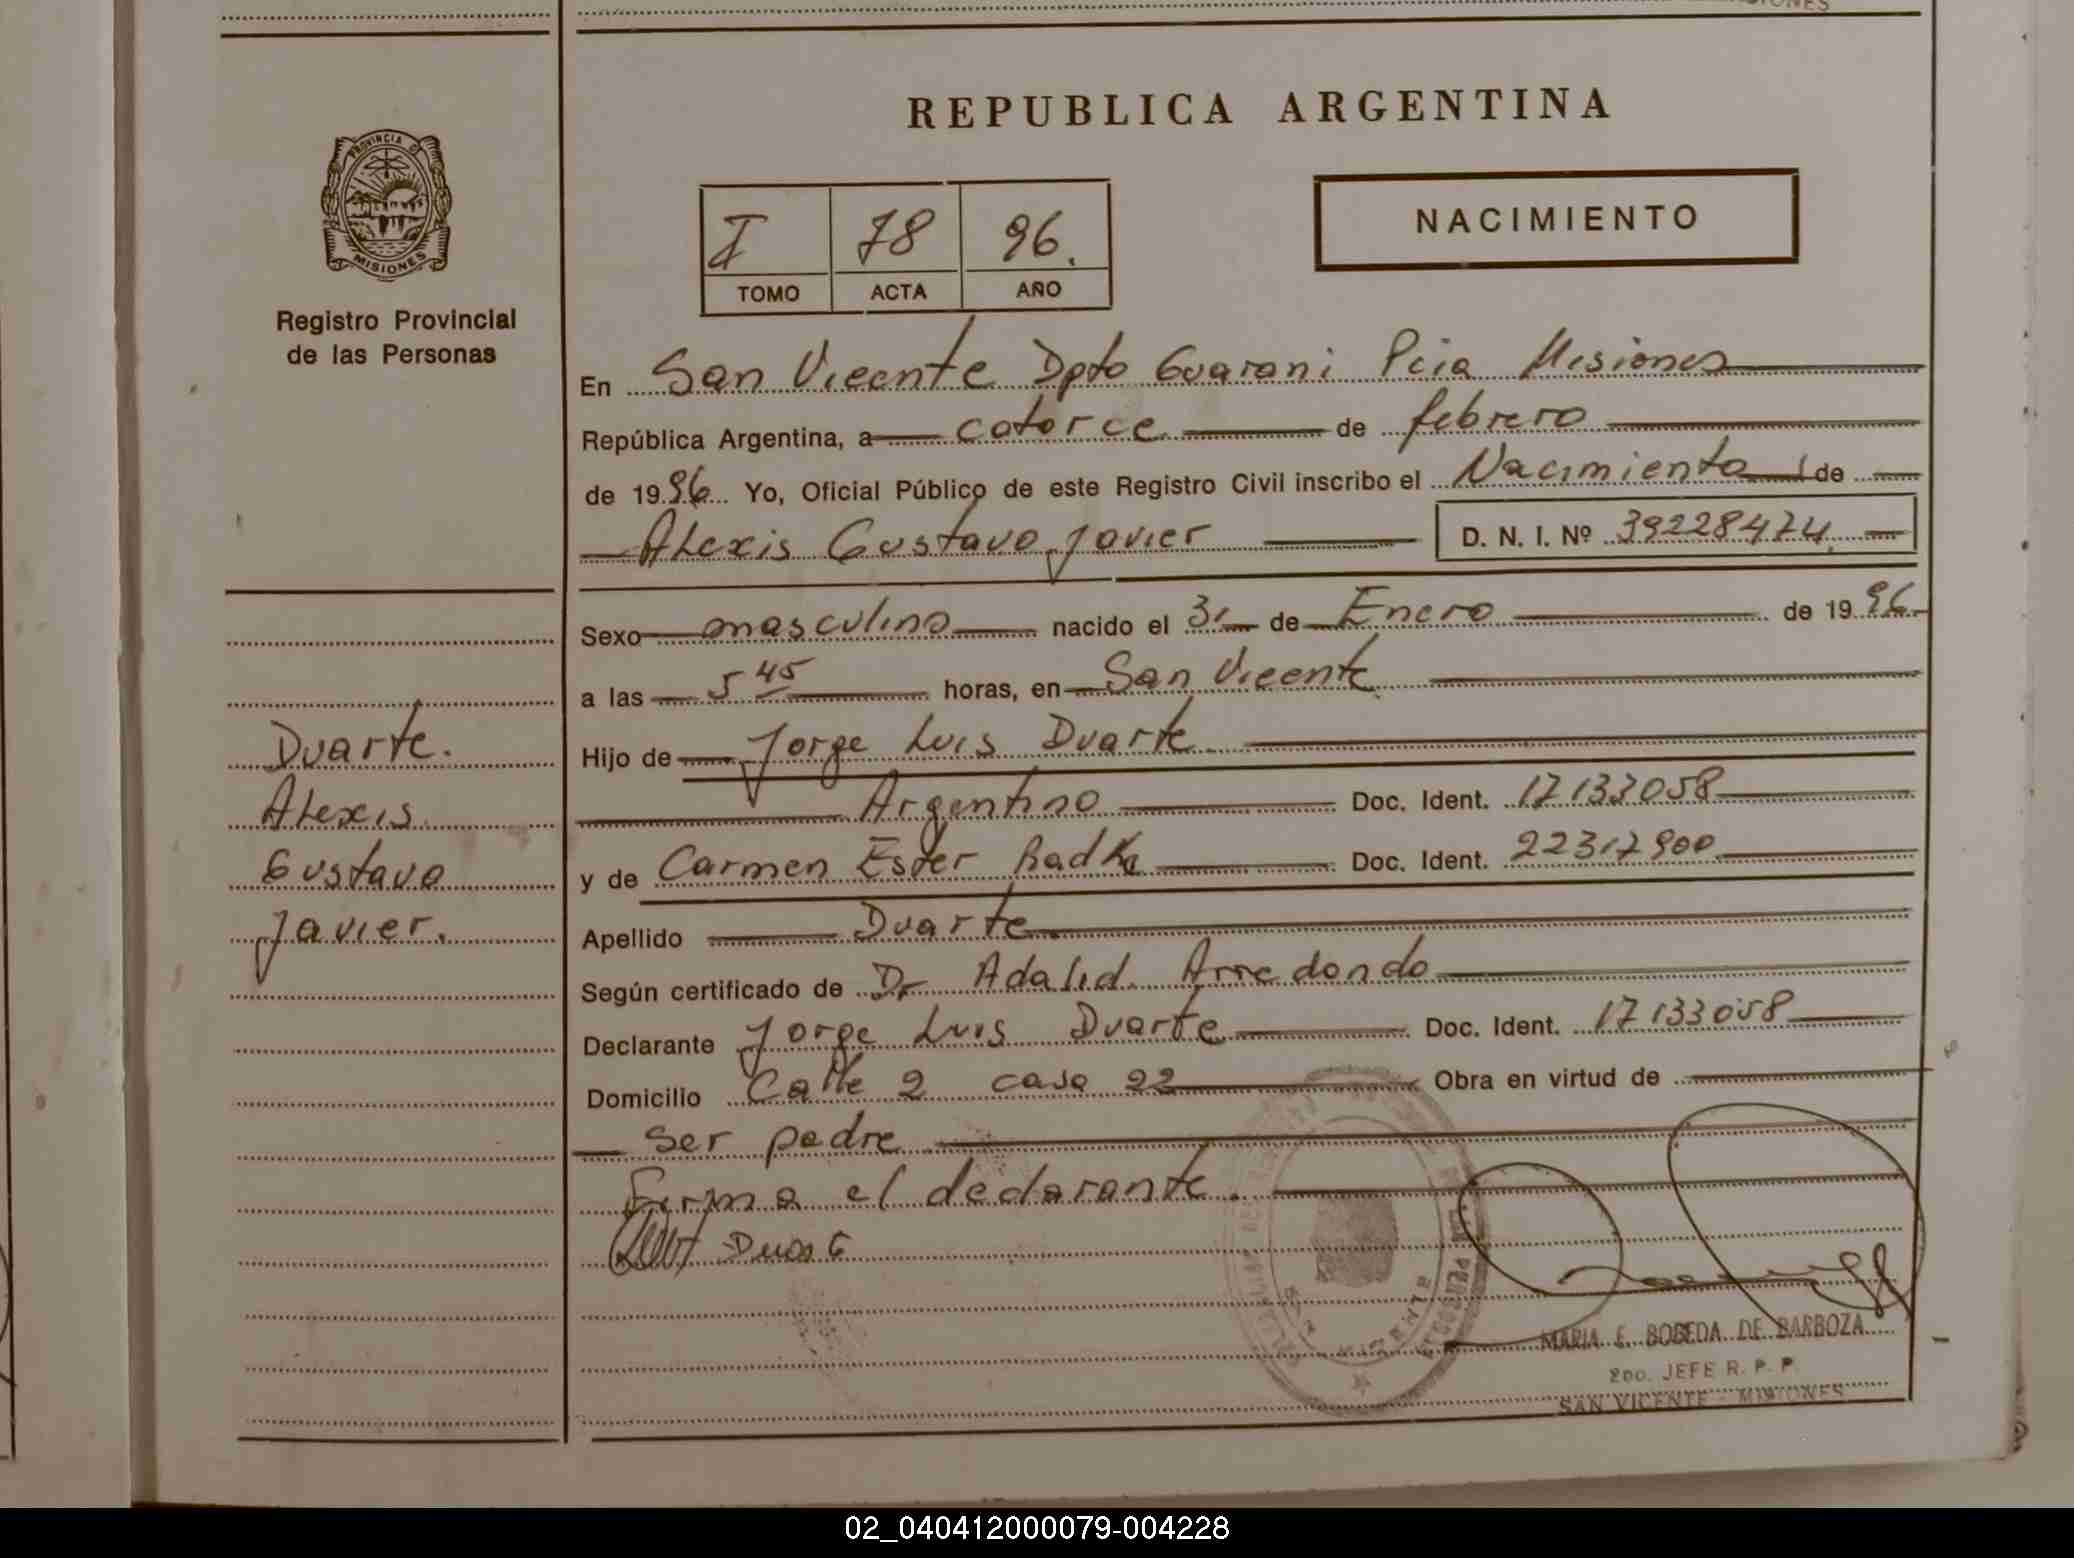 REPUBLICA ARGENTINA
PROVINCIA D
MISIONES
Registro Provincial
de las Personas
I 78 96.
TOMO ACTA AÑO
NACIMIENTO
En San Vicente Dpto Guarani Pcia Misiones
República Argentina, a catorce de febrero
de 1996 Yo, Oficial Público de este Registro Civil inscribo el Nacimiento de
Alexis Gustavo Javier D. N. I. Nº 39228474
Sexo masculino nacido el 31 de Enero de 1996
a las 5 45 horas, en San Vicente
Hijo de Jorge Luis Duarte
Argentino Doc. Ident. 17133058
y de Carmen Ester Radke Doc. Ident. 22317900
Apellido Duarte
Según certificado de Dr Adalid Arredondo
Declarante Jorge Luis Duarte Doc. Ident. 17133058
Domicilio Calle 2 casa 22 Obra en virtud de
ser padre
Firma el declarante.
Duarte
MARIA E. BOBEDA DE BARBOZA
2DO. JEFE R. P. P.
SAN VICENTE - MISIONES
Duarte.
Alexis
Gustavo
Javier.
02_040412000079-004228